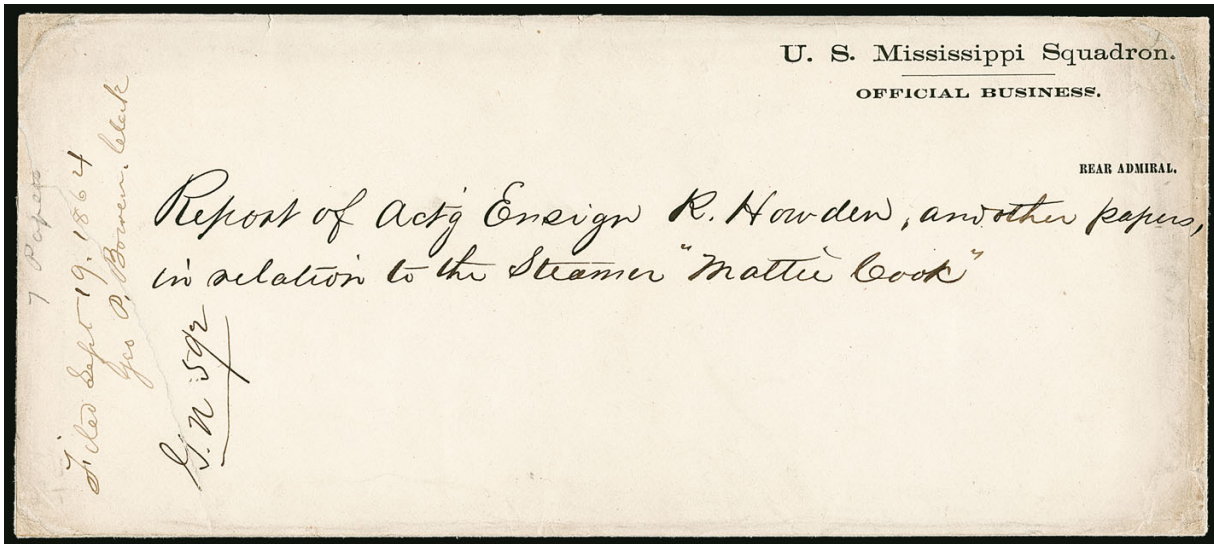 U. S. Mississippi Squadron.
OFFICIAL BUSINESS.
REAR ADMIRAL.
Report of Act'g Ensign R. Howden, and other papers,
in relation to the Steamer "Mattie Cook"
G. N. 592
Filed Sept 19. 1864
Geo P. Bowen. Clerk
7 Papers